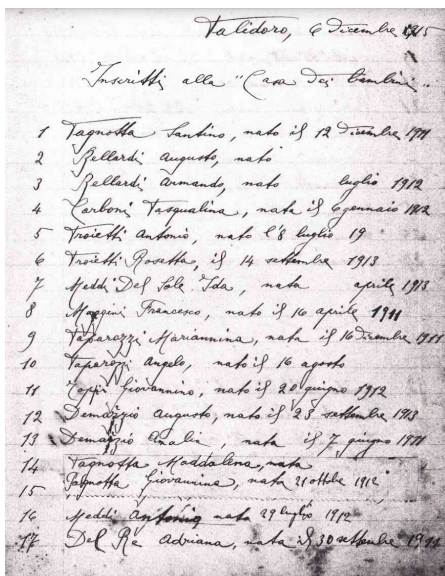 Palidoro, 6 Dicembre 1915
Inscritti alla "Casa dei bambini"
1 Pagnotta Santino, nato il 12 Dicembre 1911
2 Bellardi Augusto, nato
3 Bellardi Armando, nato luglio 1912
4 Carboni Pasqualina, nata il 6 gennaio 1912
5 Proietti Antonio, nato l'8 luglio 19
6 Proietti Rosetta, il 14 settembre 1913
7 Meddi Del Sole Ida, nata aprile 1913
8 Maggini Francesco, nato il 16 aprile 1911
9 Paparozzi Mariannina, nata il 16 Dicembre 1911
10 Paparozzi Angelo, nato il 16 agosto
11 Zoppi Giovannino, nato il 20 giugno 1912
12 Demazzio Augusto, nato il 23 settembre 1913
13 Demazzio, nata il 7 giugno 1911
14 Pagnotta Maddalena, nata
15 Pagnotta Giovannina, nata 21 ottobre 1912
16 Meddi Antonia nata 29 luglio 1912
17 Del Re Adriana, nata il 30 settembre 1911